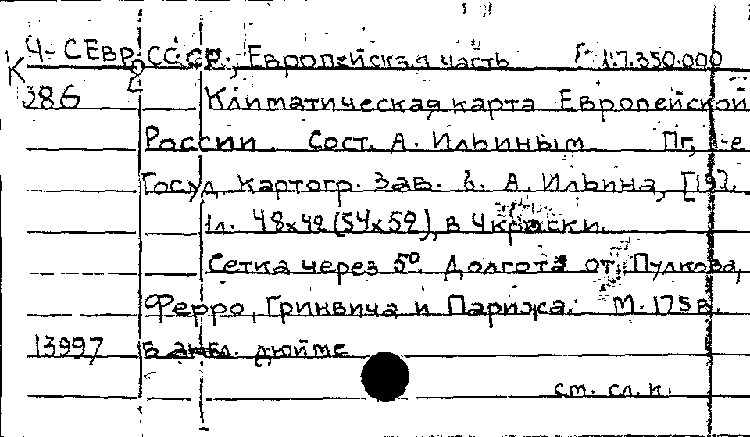 Ч-СЕвр. СССР., Европейская часть 1:7.350.000
К 2
386 Климатическая карта Европейской
России. Сост. А. Ильиным Пг, 1-е
Госуд. Картогр. Зав. б. А. Ильина, [19].
1л. 48х42 (54х52), в 4 краски.
Сетка через 5°. Долгота от Пулкова,
Ферро, Гринвича и Парижа. М. 175 в.
13997 в англ. дюйме
см. сл. к.